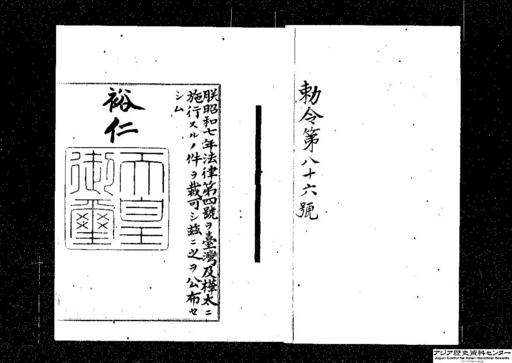 勅令第八十六號
朕昭和七年法律第四號ヲ臺灣及樺太ニ
施行スルノ件ヲ裁可シ玆ニ之ヲ公布セ
シム
裕仁
天皇
御璽
アジア歴史資料センター
Japan Center for Asian Historical Records